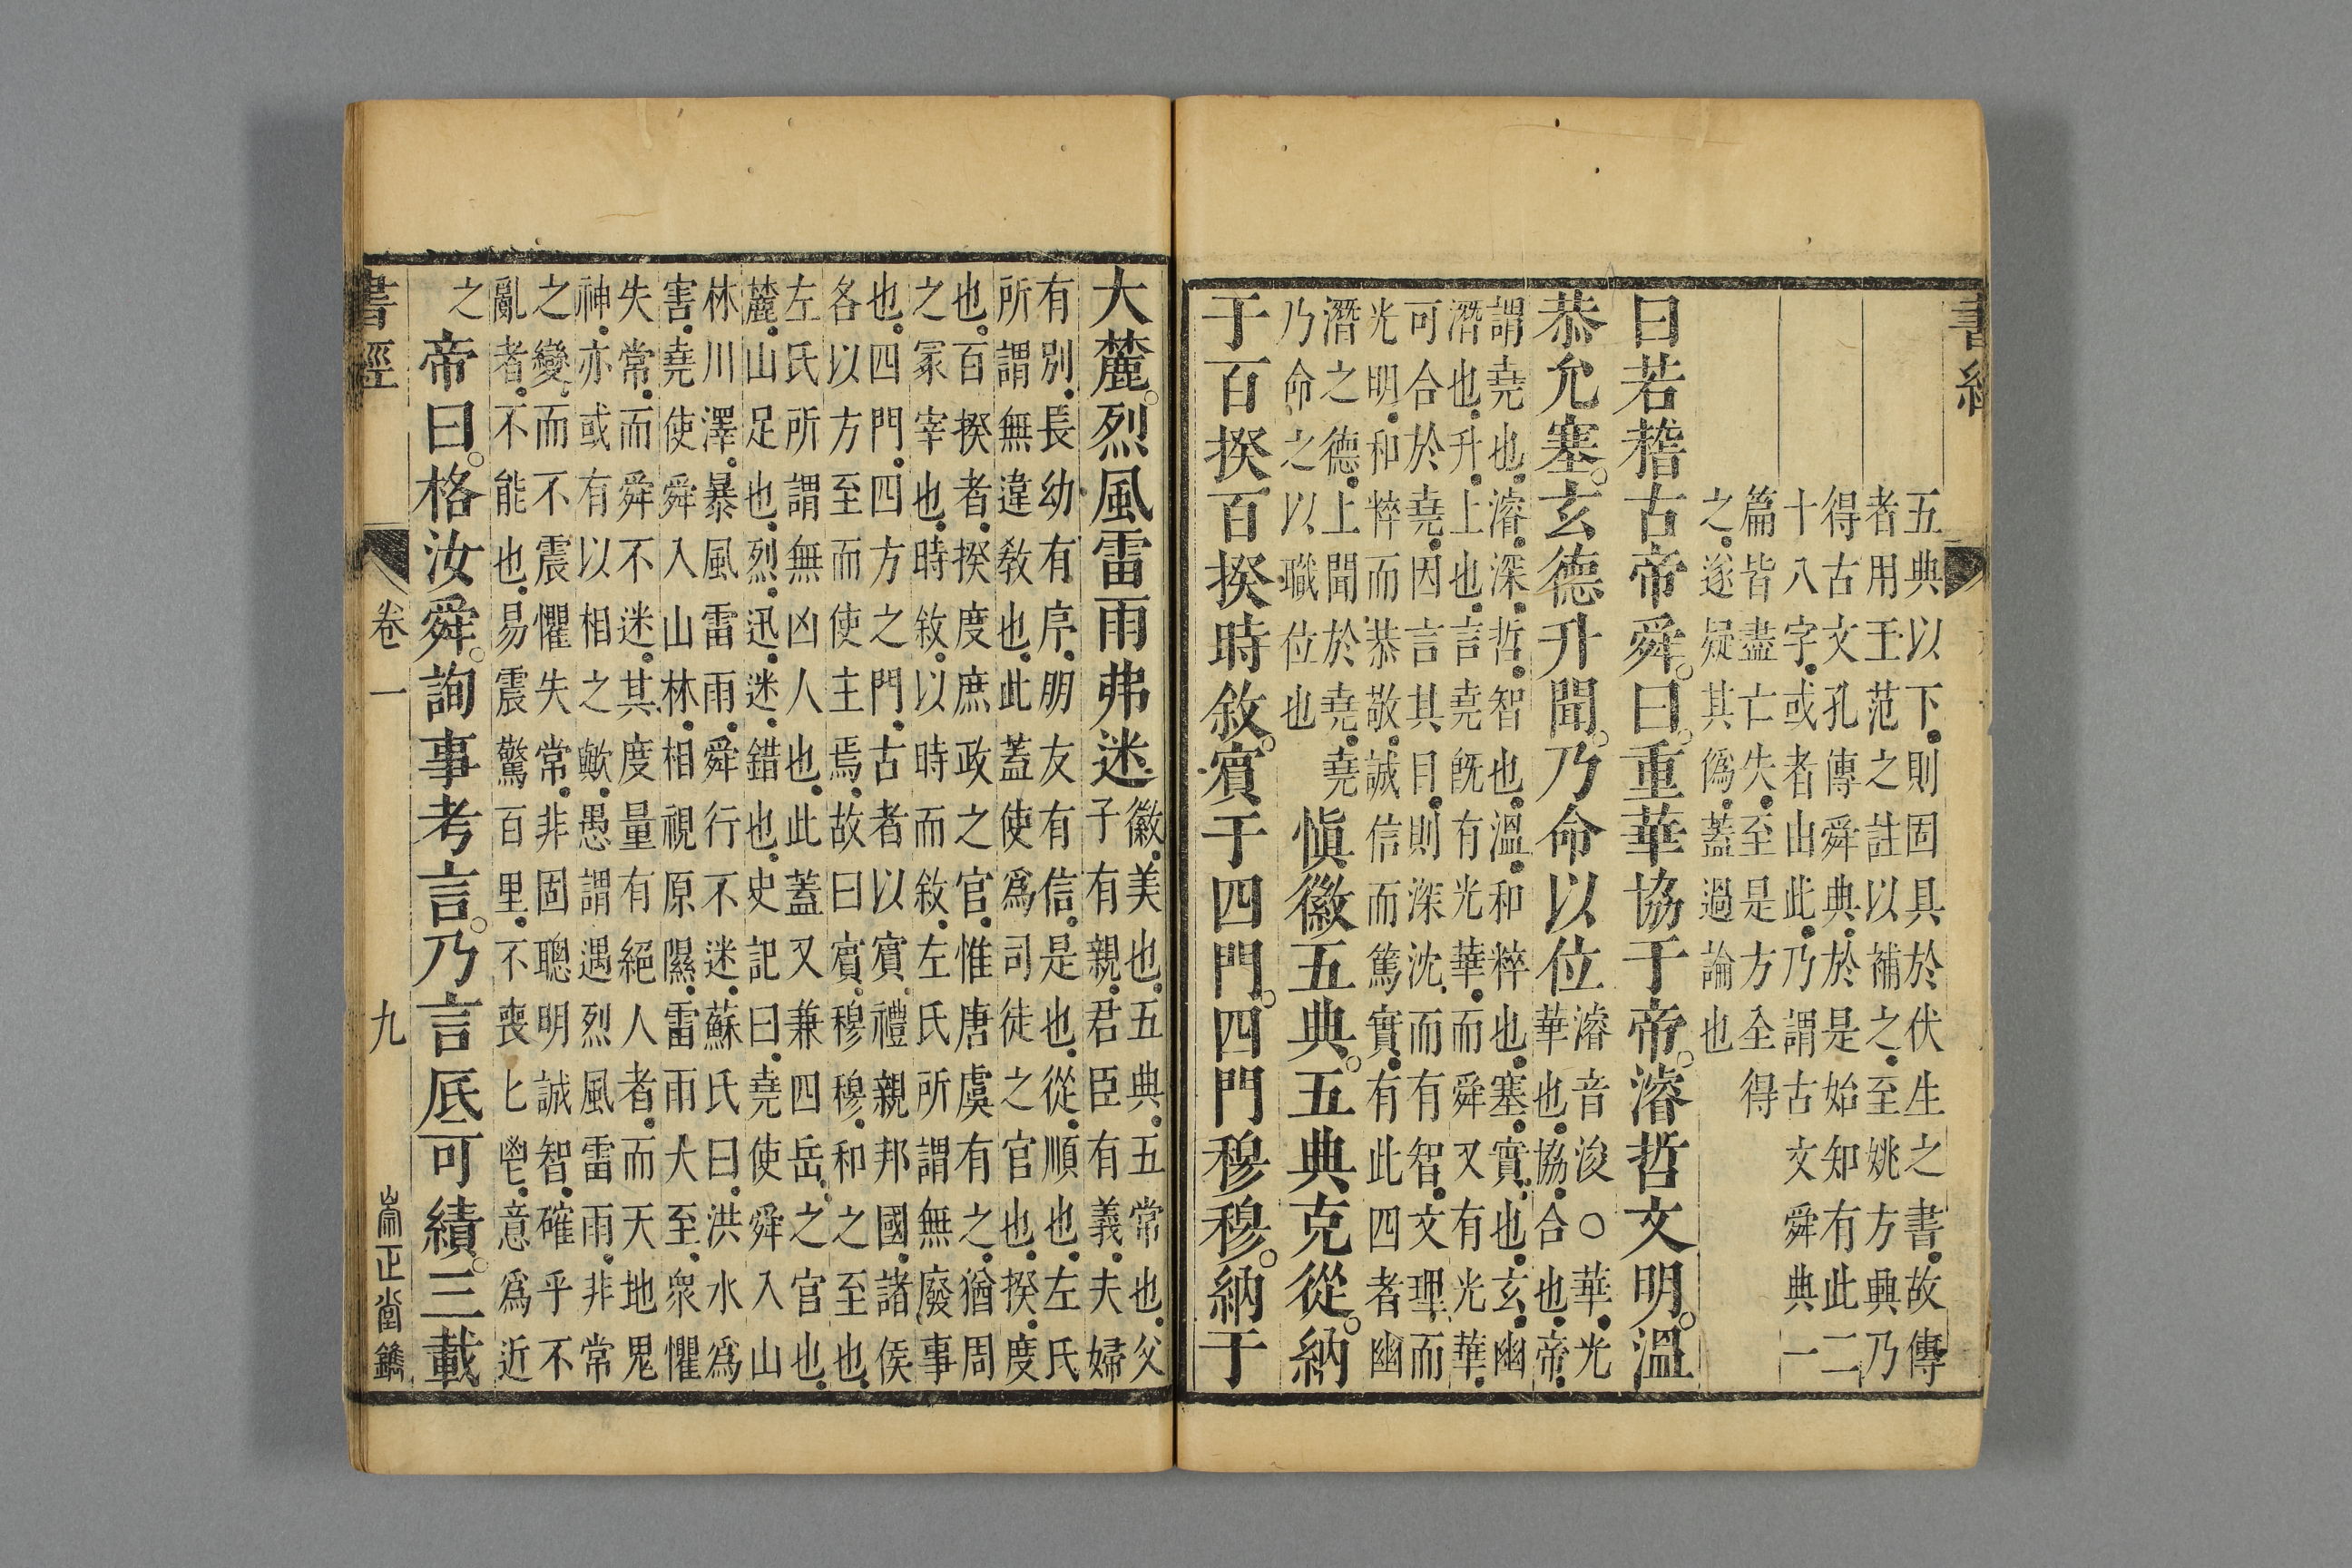 書經
五典以下則固具於伏生之書故傳
者用王范之註以補之至姚方興乃
得古文孔傳舜典於是始知有此二
十八字或者山此乃謂古文舜典一
篇皆盡亡失至是方全得
之遂疑其僞蓋過論也
曰若稽古帝舜曰重華協于帝濬哲文明溫
恭允塞玄德升聞乃命以位
濬音浚○華光
華也協合也帝
謂堯也濬深哲智也溫和粹也塞實也玄幽
潛也升上也言堯既有光華而舜又有光華
可合於堯因言其目則深沈而有智文理而
光明和粹而恭敬誠信而篤實有此四者幽
潛之德上聞於堯堯
乃命之以職位也
愼徽五典五典克從納
于百揆百揆時敘賓于四門四門穆穆納于
大麓烈風雷雨弗迷
徽美也五典五常也父
子有親君臣有義夫婦
有別長幼有序朋友有信是也從順也左氏
所謂無違敎也此蓋使爲司徒之官也揆度
也百揆者揆度庶政之官惟唐虞有之猶周
之冢宰也時敘以時而敘左氏所謂無廢事
也四門四方之門古者以賓禮親邦國諸侯
各以方至而使主焉故曰賓穆穆和之至也
左氏所謂無凶人也此蓋又兼四岳之官也
麓山足也烈迅迷錯也史記曰堯使舜入山
林川澤暴風雷雨舜行不迷蘇氏曰洪水爲
害堯使舜入山林相視原隰雷雨大至衆懼
失常而舜不迷其度量有絕人者而天地鬼
神亦或有以相之歟愚謂遇烈風雷雨非常
之變而不震懼失常非固聰明誠智確乎不
亂者不能也易震驚百里不喪匕鬯意爲近
之
帝曰格汝舜詢事考言乃言厎可績三載
書經 卷一 九 崇正堂鐫